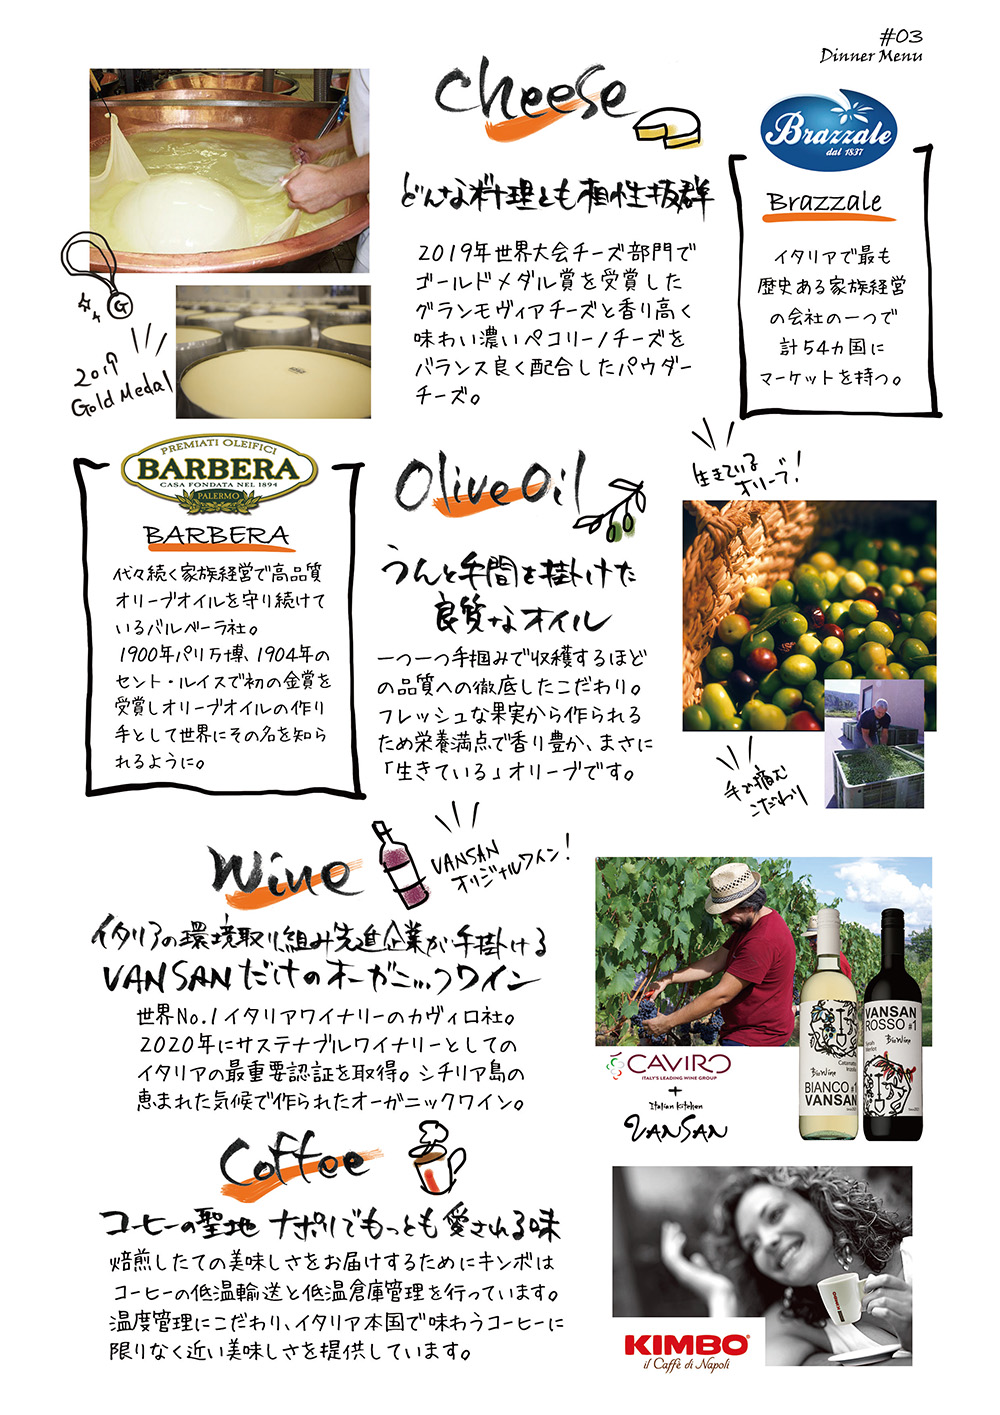 #03
Dinner Menu
Cheese
どんな料理とも相性抜群
2019年世界大会チーズ部門で
ゴールドメダル賞を受賞した
グランモヴィアチーズと香り高く
味わい濃いペコリーノチーズを
バランス良く配合したパウダー
チーズ。
G
2019
Gold Medal
Brazzale
dal 1837
Brazzale
イタリアで最も
歴史ある家族経営
の会社の一つで
計54カ国に
マーケットを持つ。
PREMIATI OLEIFICI
BARBERA
CASA FONDATA NEL 1894
PALERMO
BARBERA
代々続く家族経営で高品質
オリーブオイルを守り続けて
いるバルベーラ社。
1900年パリ万博、1904年の
セント・ルイスで初の金賞を
受賞しオリーブオイルの作り
手として世界にその名を知ら
れるように。
Olive Oil
うんと手間を掛けた
良質なオイル
一つ一つ手掴みで収穫するほど
の品質への徹底したこだわり。
フレッシュな果実から作られる
ため栄養満点で香り豊か、まさに
「生きている」オリーブです。
生きている
オリーブ!
手で摘む
こだわり
Wine
VANSAN
オリジナルワイン!
イタリアの環境取り組み先進企業が手掛ける
VANSANだけのオーガニックワイン
世界No.1イタリアワイナリーのカヴィロ社。
2020年にサステナブルワイナリーとしての
イタリアの最重要認証を取得。シチリア島の
恵まれた気候で作られたオーガニックワイン。
CAVIRO
ITALY'S LEADING WINE GROUP
+
Italian Kitchen
VANSAN
BioWine
BIANCO #1
VANSAN
VANSAN
ROSSO #1
BioWine
Coffee
コーヒーの聖地 ナポリでもっとも愛される味
焙煎したての美味しさをお届けするためにキンボは
コーヒーの低温輸送と低温倉庫管理を行っています。
温度管理にこだわり、イタリア本国で味わうコーヒーに
限りなく近い美味しさを提供しています。
KIMBO
il Caffè di Napoli